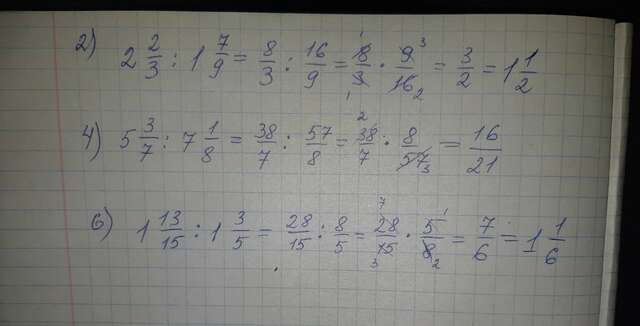 2) 2 2/3 : 1 7/9 = 8/3 : 16/9 = 8/3 · 9/16 = 3/2 = 1 1/2
4) 5 3/7 : 7 1/8 = 38/7 : 57/8 = 38/7 · 8/57 = 16/21
6) 1 13/15 : 1 3/5 = 28/15 : 8/5 = 28/15 · 5/8 = 7/6 = 1 1/6